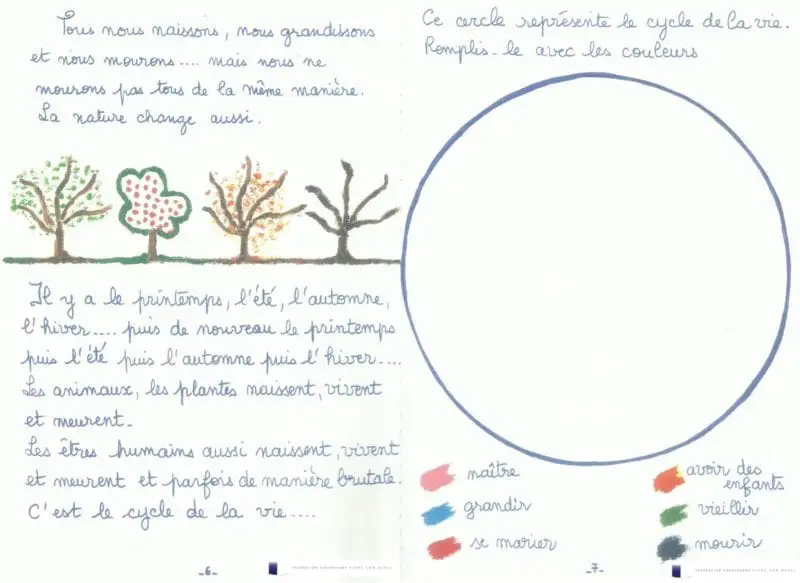 Tous nous naissons, nous grandissons
et nous mourons.... mais nous ne
mourons pas tous de la même manière.
La nature change aussi.
Il y a le printemps, l'été, l'automne,
l'hiver.... puis de nouveau le printemps
puis l'été puis l'automne puis l'hiver....
Les animaux, les plantes naissent, vivent
et meurent.
Les êtres humains aussi naissent, vivent
et meurent et parfois de manière brutale.
C'est le cycle de la vie....
-6-
Ce cercle représente le cycle de la vie.
Remplis-le avec les couleurs
naître
grandir
se marier
avoir des
enfants
vieillir
mourir
-7-